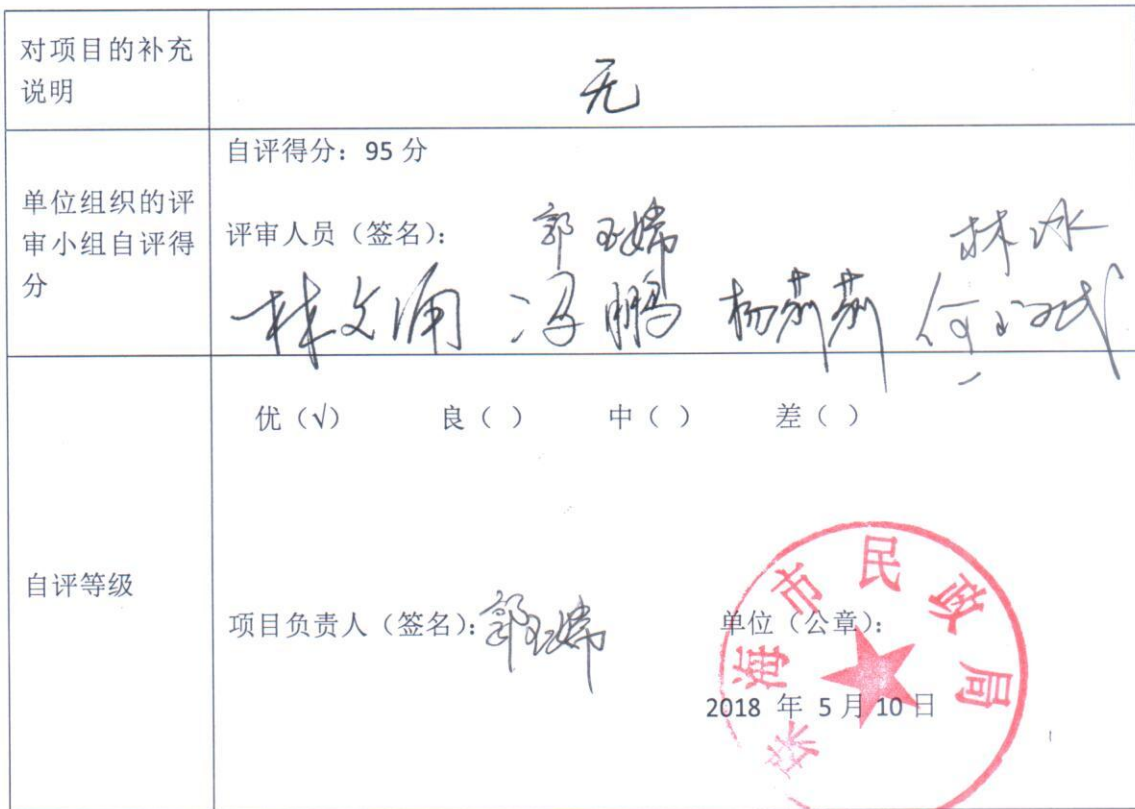 对项目的补充
说明
无
单位组织的评
审小组自评得
分
自评得分：95 分
评审人员（签名）：
郭 林冰
林文涌 冯鹏 杨莉莉 何
自评等级
优（√） 良（ ） 中（ ） 差（ ）
项目负责人（签名）：郭
单位（公章）：
2018 年 5 月 10 日
珠海市民政局